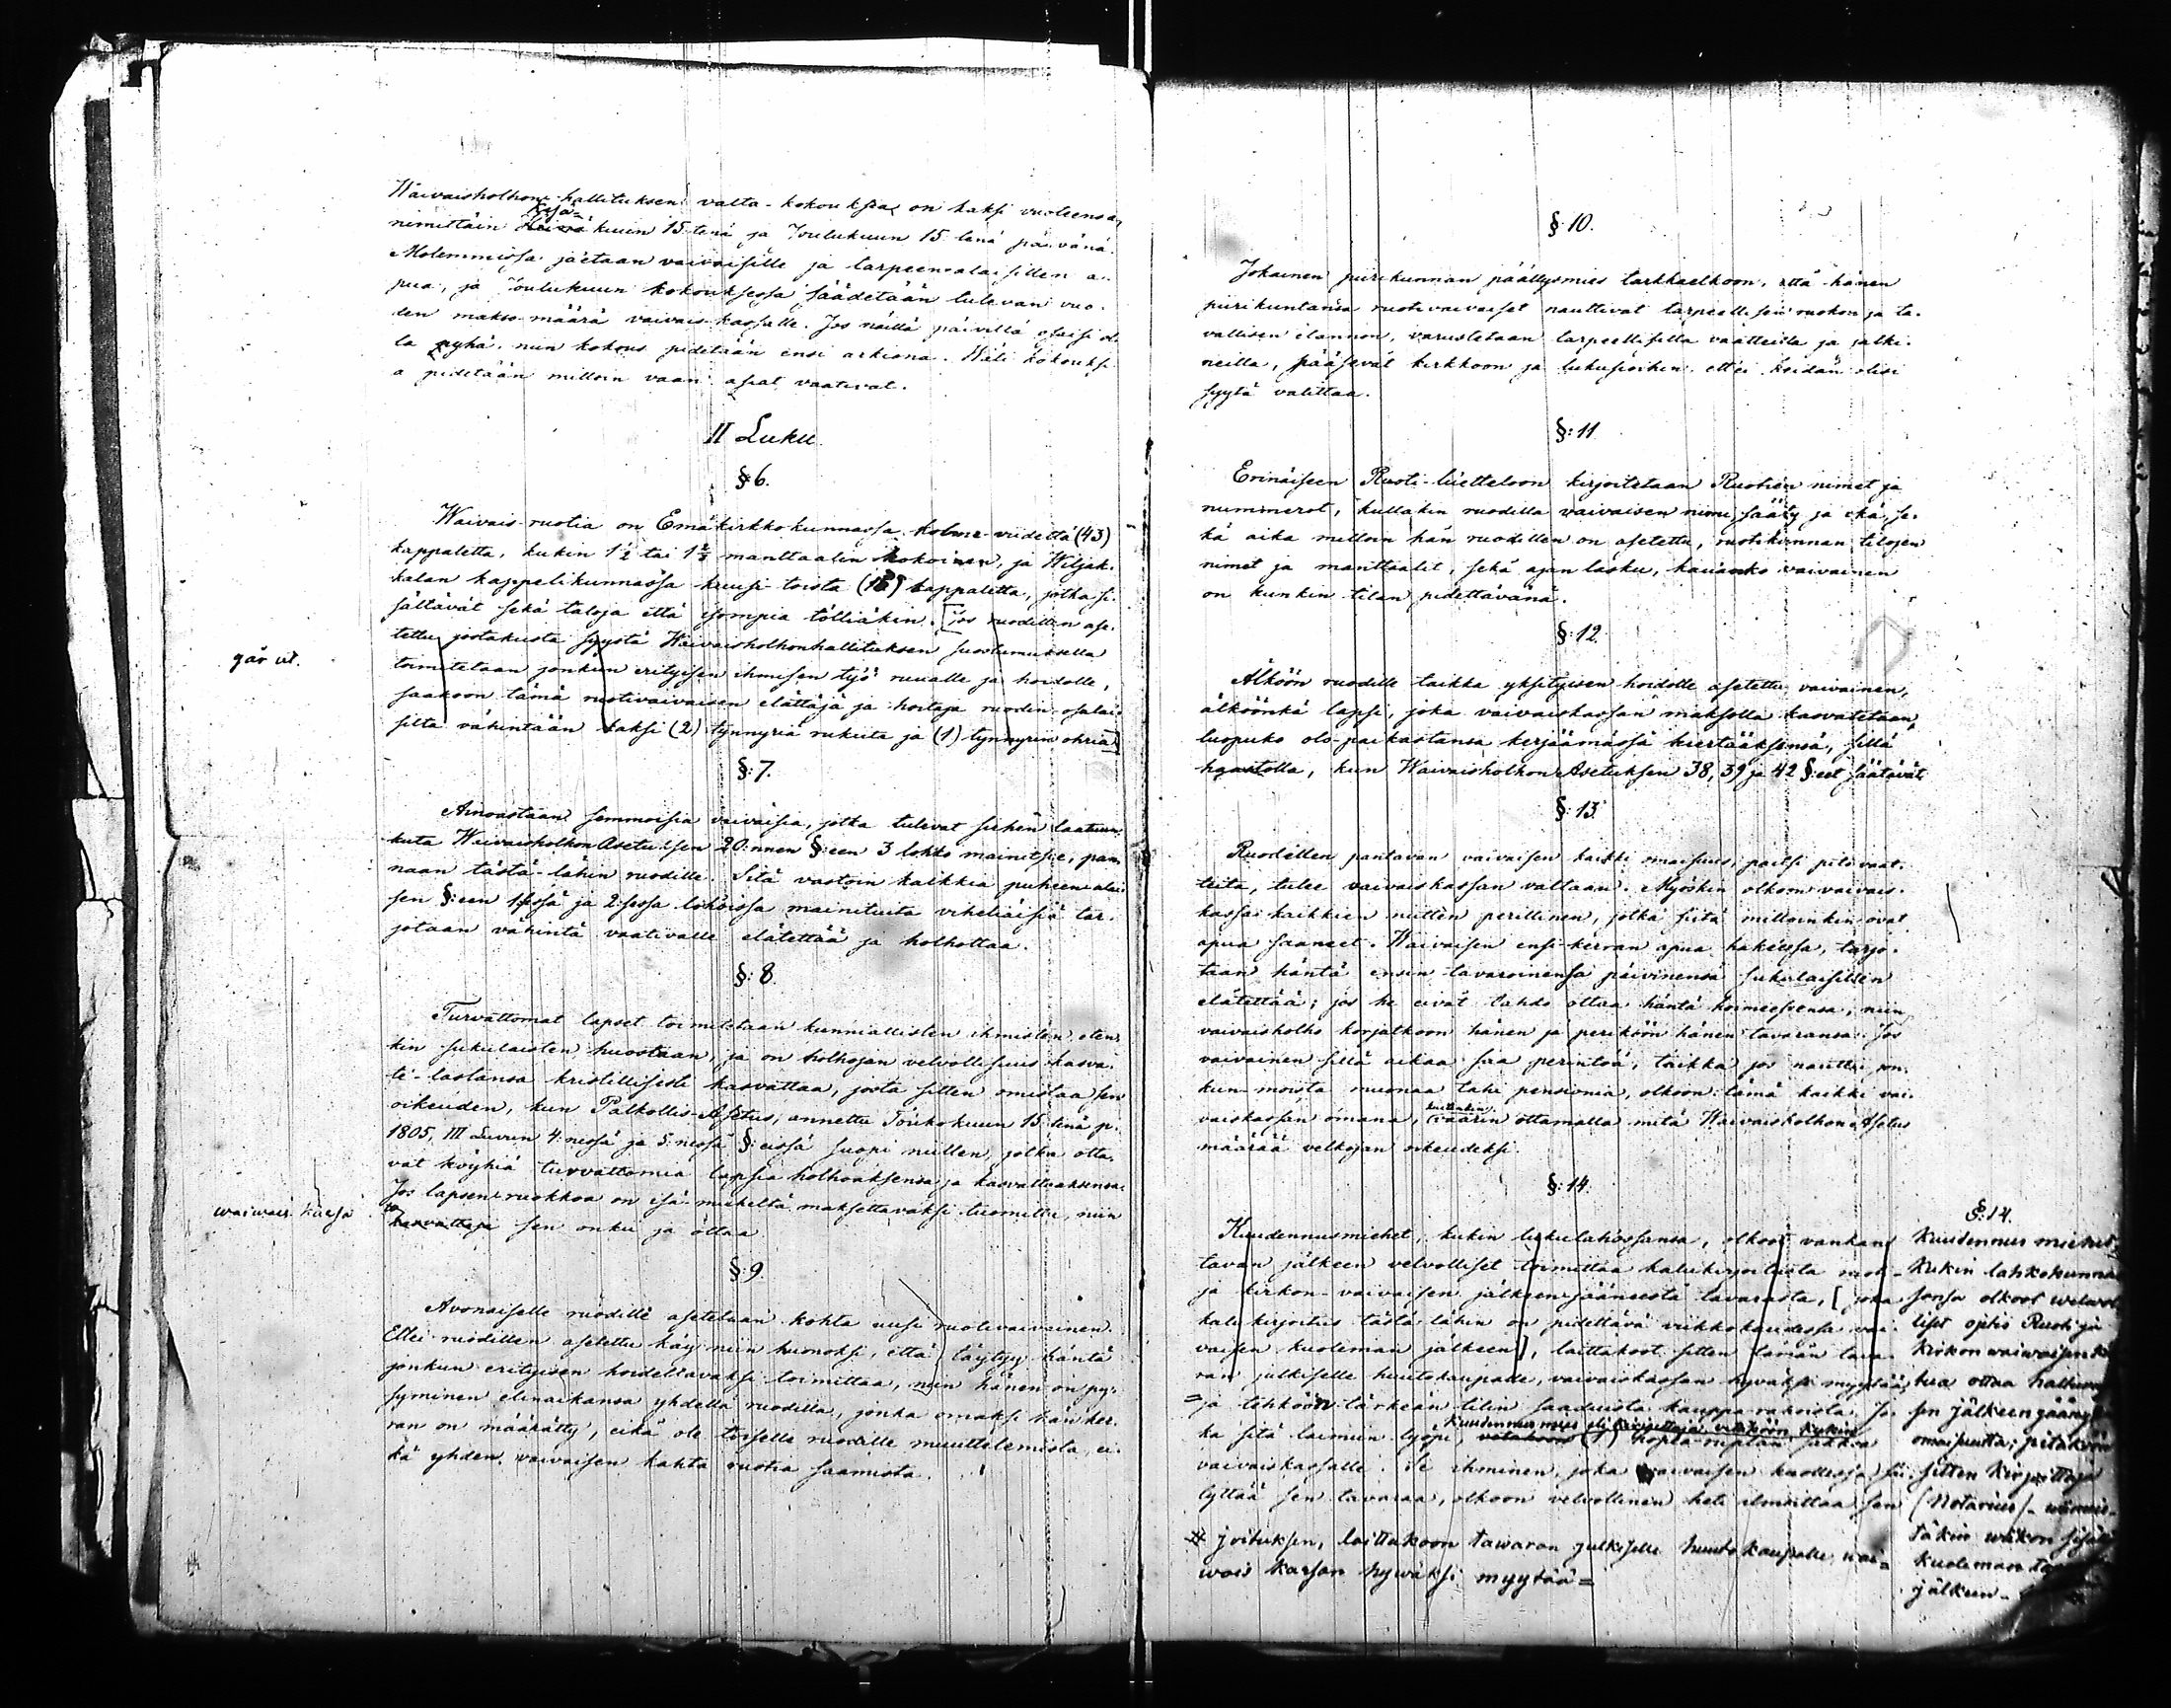 Waivaisholhous-hallituksen valta-kokouksia on kaksi vuoteensa,
nimittäin Kesä= kuun 15 tenä ja Joulukuun 15 tenä päivänä.
Molemmissa jaetaan vaivaisille ja tarpeenalaisillen a-
pua, ja Joulukuun kokouksessa säädetään tulevan vuo-
den makso-määrä vaivais-kassalle. Jos näillä päivillä osaisi ol-
la pyhä, niin kokous pidetään ensi arkiona. Väli kokouksi-
a pidetään milloin vaan asiat vaativat.
II Luku.
§ 6.
Waivais-ruotia on Emäkirkkokunnassa kolme-viidettä (43)
kappaletta, kukin 1½ tai 1⅔ manttaalin kokoinen, ja Wiljak-
kalan kappelikunnassa kuusi-toista (16) kappaletta, jotka si-
sältävät sekä taloja että isompia tölliäkin. [Jos ruodillen ase-
tettu jostakusta syystä Waivaisholhonhallituksen suostumuksella
toimitetaan jonkun erityisen ihmisen työ ruualle ja hoidolle,
saakoon tämä ruotivaivaisen elättäjä ja hoitaja ruodin osalai-
silta vähintään kaksi (2) tynnyriä rukiita ja (1) tynnyrin ohria]
går ut.
§: 7.
Ainoastaan semmoisia vaivaisia, jotka tulevat siihen laatuun
kuta Waivaisholhon Asetuksen 20:nnen §:een 3 lohko mainitsee, pan-
naan tästä-lähin ruodille. Sitä vastoin kaikkia puheenalai-
sen §:een 1:ssä ja 2:sessa lohkoissa mainituita viheliäisiä tar-
jotaan vähintä vaativalle elätettää ja holhottaa.
§: 8.
Turvattomat lapset toimitetaan kunniallisten ihmisten, eten-
kin sukulaisten huostaan, ja on holhojan velvollisuus kasva-
ti-lastansa kristillisesti kasvattaa, josta sitten omistaa sen
oikeuden, kun Palkollis-Asetus, annettu Toukokuun 15 tenä p.
1805, III Luvun 4:nessä ja 5:nessä §:eissä suopi niillen, jotka otta-
vat köyhiä turvattomia lapsia holhoaksensa ja kasvattaaksensa.
Jos lapsen ruokkoa on isä-mieheltä maksettavaksi tuomittu, niin
kasvattaja sen onkii ja ottaa.
waiwais kassa
§: 9.
Avonaiselle ruodille asetetaan kohta uusi ruotivaivainen.
Ellei ruodillen asetettu käy niin huonoksi, että täytyy häntä
jonkun erityisen hoidettavaksi toimittaa, niin hänen on py-
syminen elinaikansa yhdellä ruodilla, jonka omaksi hän ker-
ran on määrätty, eikä ole toiselle ruodille muuttelemista, ei-
kä yhden vaivaisen kahta ruotia saamista.
§: 10.
Jokainen piirikunnan päällysmies tarkkaelkoon, että hänen
piirikuntansa ruotivaivaiset nauttivat tarpeellisen ruokon ja ta-
vallisen elannon, varustetaan tarpeellisilla vaatteilla ja jalki-
neilla, pääsevät kirkkoon ja lukusioihin ettei heidän olisi
syytä valittaa.
§: 11.
Erinäiseen Ruoti-luetteloon kirjoitetaan Ruotien nimet ja
nummerot, kullakin ruodilla vaivaisen nimi, sääty ja ikä, se-
kä aika milloin hän ruodillen on asetettu, ruotikunnan tilojen
nimet ja manttaalit, sekä ajan lasku, kauanko vaivainen
on kunkin tilan pidettävänä.
§: 12.
Älköön ruodille taikka yksityisen hoidolle asetettu vaivainen,
älköönkä lapsi, joka vaivaiskassan maksolla kasvatetaan,
luopuko olo-paikastansa kerjäämässä kiertääksensä, sillä
haastolla, kun Waivaisholhon-Asetuksen 38, 39 ja 42 §:eet säätävät
§: 13.
Ruodillen pantavan vaivaisen kaikki omaisuus, paitsi pitovaat-
teita, tulee vaivaiskassan valtaan. Myöskin olkoon vaivais-
kassa kaikkien niitten perillinen, jotka siitä milloinkin ovat
apua saaneet. Waivaisen ensi-kerran apua hakeissa, tarjo-
taan häntä ensin tavaroinensa päivinensä sukulaisillen
elätettää; jos he eivät tahdo ottaa häntä hoimeesensa, niin
vaivaisholho korjatkoon hänen ja periköön hänen tavaransa. Jos
vaivainen sillä aikaa saa perintöä, taikka jos nauttii jon-
kun-moista muonaa tahi pensionia, olkoon tämä kaikki vai-
vaiskassan omana, kuitenkin väärin ottamatta mitä Waivaisholhon-Asetus
määrää velkojan oikeudeksi.
§: 14.
Kuudennusmiehet, kukin lukulahossansa, olkoot vanhan
tavan jälkeen velvolliset toimittaa kalukirjoitusta ruoti-
ja kirkon-vaivaisen jälkeenjääneestä tavarasta, [joka
kalukirjoitus tästä lähin on pidettävä viikkokaudessa vai-
vaisen kuoleman jälkeen], laittakoot sitten tämän tava-
ran julkiselle huutokaupalle, vaivaiskassan hyväksi myytää,
= ja tehköön tarkean tilin saaduista kauppa-rahoista. Jo-
ka sitä laimiin lyöpi, Kuudennusmies eli kirjoittaja vetäköön kukin
vetakoon (1) hopia-ruplan sakkoa
vaivaiskassalle. Se ihminen, joka vaivaisen kuollessa säi-
lyttää sen tavaraa, olkoon velvollinen heti ilmoittaa sen
# joituksen, laittakoon tawaran julkiselle huutokaupalle, wai=
wais kassan hywäksi myytää=
§: 14.
Kuudennus miehet,
kukin lahkokunnas-
sansa olkoot welwol-
liset
Ruoti ja
Kirkon waiwaisen
ottaa
sen jälkeen jääny
omaisuutta; pitäköön
sitten kirjoittaja
(Notarius)
kuoleman
jälkeen-